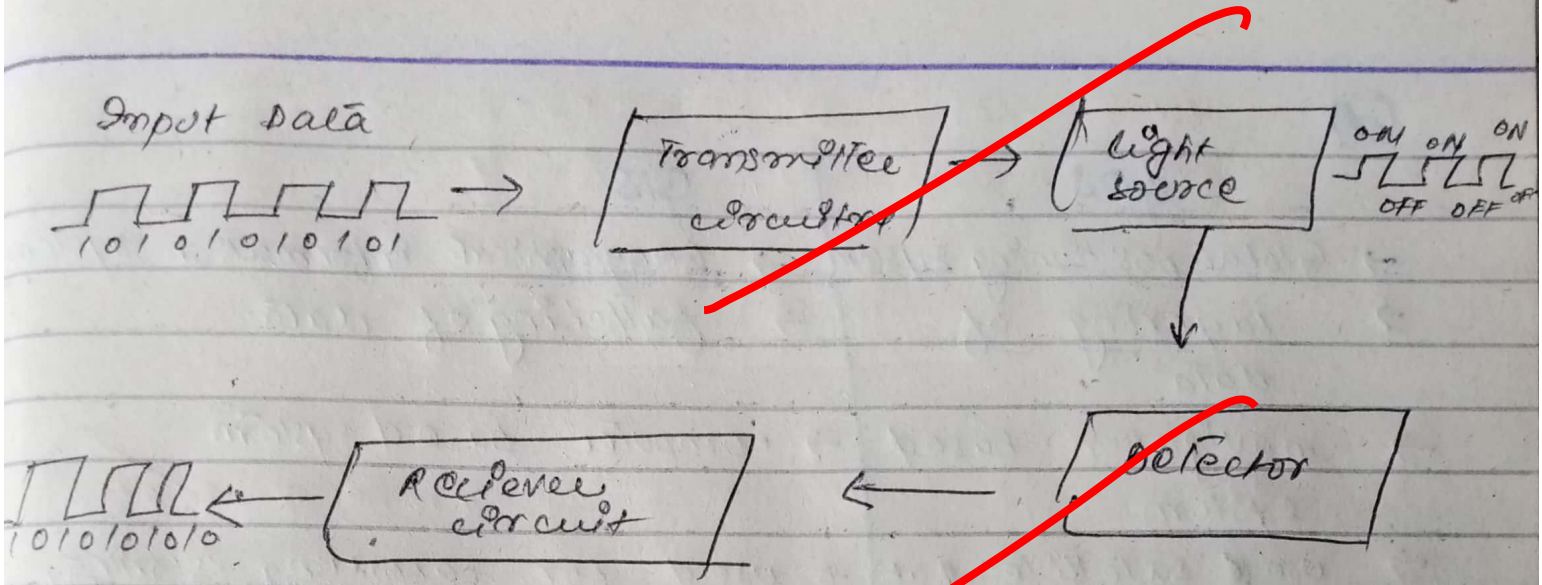 Input Data
1 0 1 0 1 0 1 0 1 0 1
Transmitter
circuitry
light
source
ON ON ON
OFF OFF OFF
Detector
Reciever
circuit
1 0 1 0 1 0 1 0 1 0